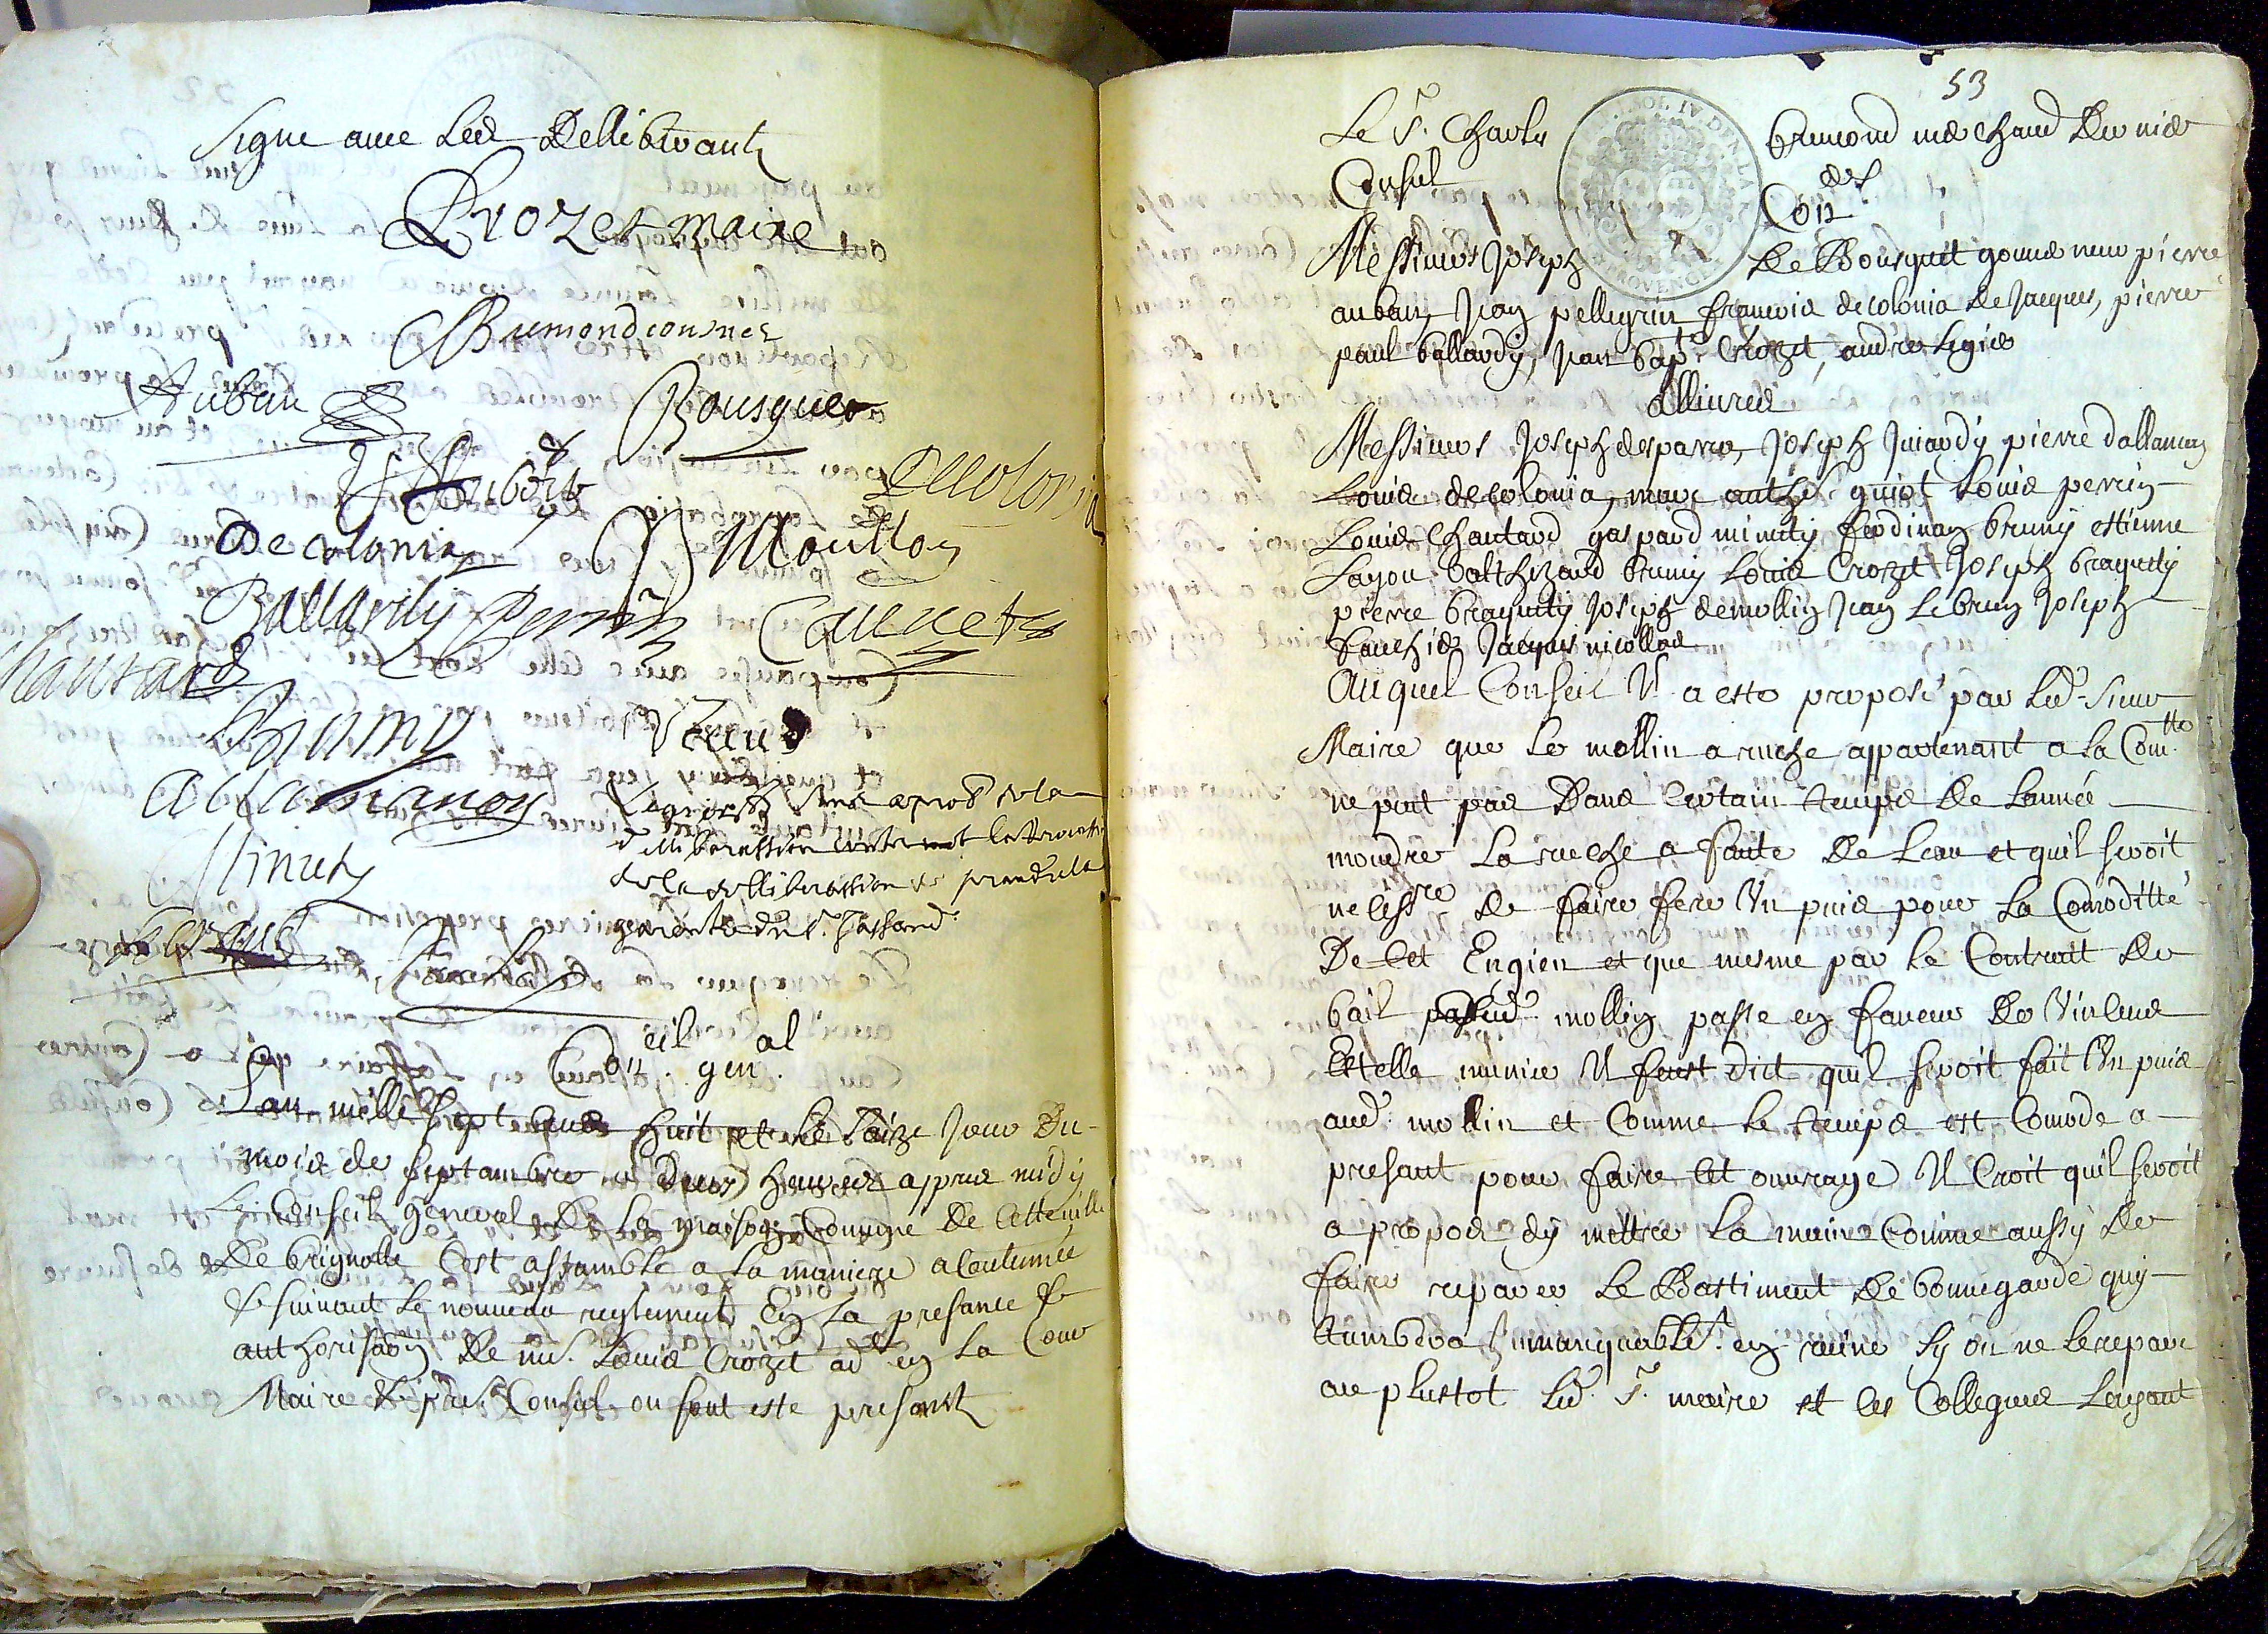 Signe avec les Dellibérants
Crozet maire
Brumond consuer
Auban
Bousquet
Decolonia
Decolonia
J Moutton
Ballardy
Perrin
Cauuet
Chautard
Bruny
Veuë
Dallamanon
Minuty
Lebrun
Con.eil gen.al
Lan mille sept cens huit et le saize Jour Du
mois de septambre a Deux heures appres midy
Le Conseil general De la maison Commune De Cette ville
De brignolle C'est assamble a la maniere acoutumée
& suivant le nouveau reglement En la presance &
authorisaon De mr. Louis Crozet adt en la Cour
Maire & pr. Consul ou sont este presants
53
Le Sr. Charles brumond marchand dernier
Consul
Coners
Messieurs Joseph De Bousquet gouverneur pierre
auban, Jean pellegrin francois decolonia de Jacques, pierre
paul ballardy, Jean bapte Crozet, andre Sigier
allivres
Messieurs Joseph desparra, Joseph Juiardy pierre dallamanon
Louis decolonia, marc anthe guiot Louis perrin
Louis Chautard gaspard minuty ferdinan bruny estienne
Layon balthezard bruny Louis Crozet Joseph braquety
pierre braquety Joseph demollin Jean Lebrun Joseph
fauchier Jacques nicollas
Auquel Conseil Il a esté proposé par led. Sieur
Maire que le mollin a ruche appartenant a la Comtte
ne peut pas Dans Certain temps de Lannée
moudre La ruche a faute De Leau et quil seroit
necessre De faire fere Un puis pour La Comoditté
De Cet Engien et que mesme par le Contract de
bail dud. mollin passe en faveur De Vincens
Estelle munier Il feust dict quil seroit fait Un puis
aud. mollin et Comme le temps est Comode a
presant pour faire Cet ouvrage Il Croit quil seroit
a propos dy mettre la main Comme aussy De
faire reparer Le Bastiment De bonnegarde quy
tumbera Immanquablet. en ruine sy on ne le repare
au plustot led. Sr. maire et les Collegues Layant